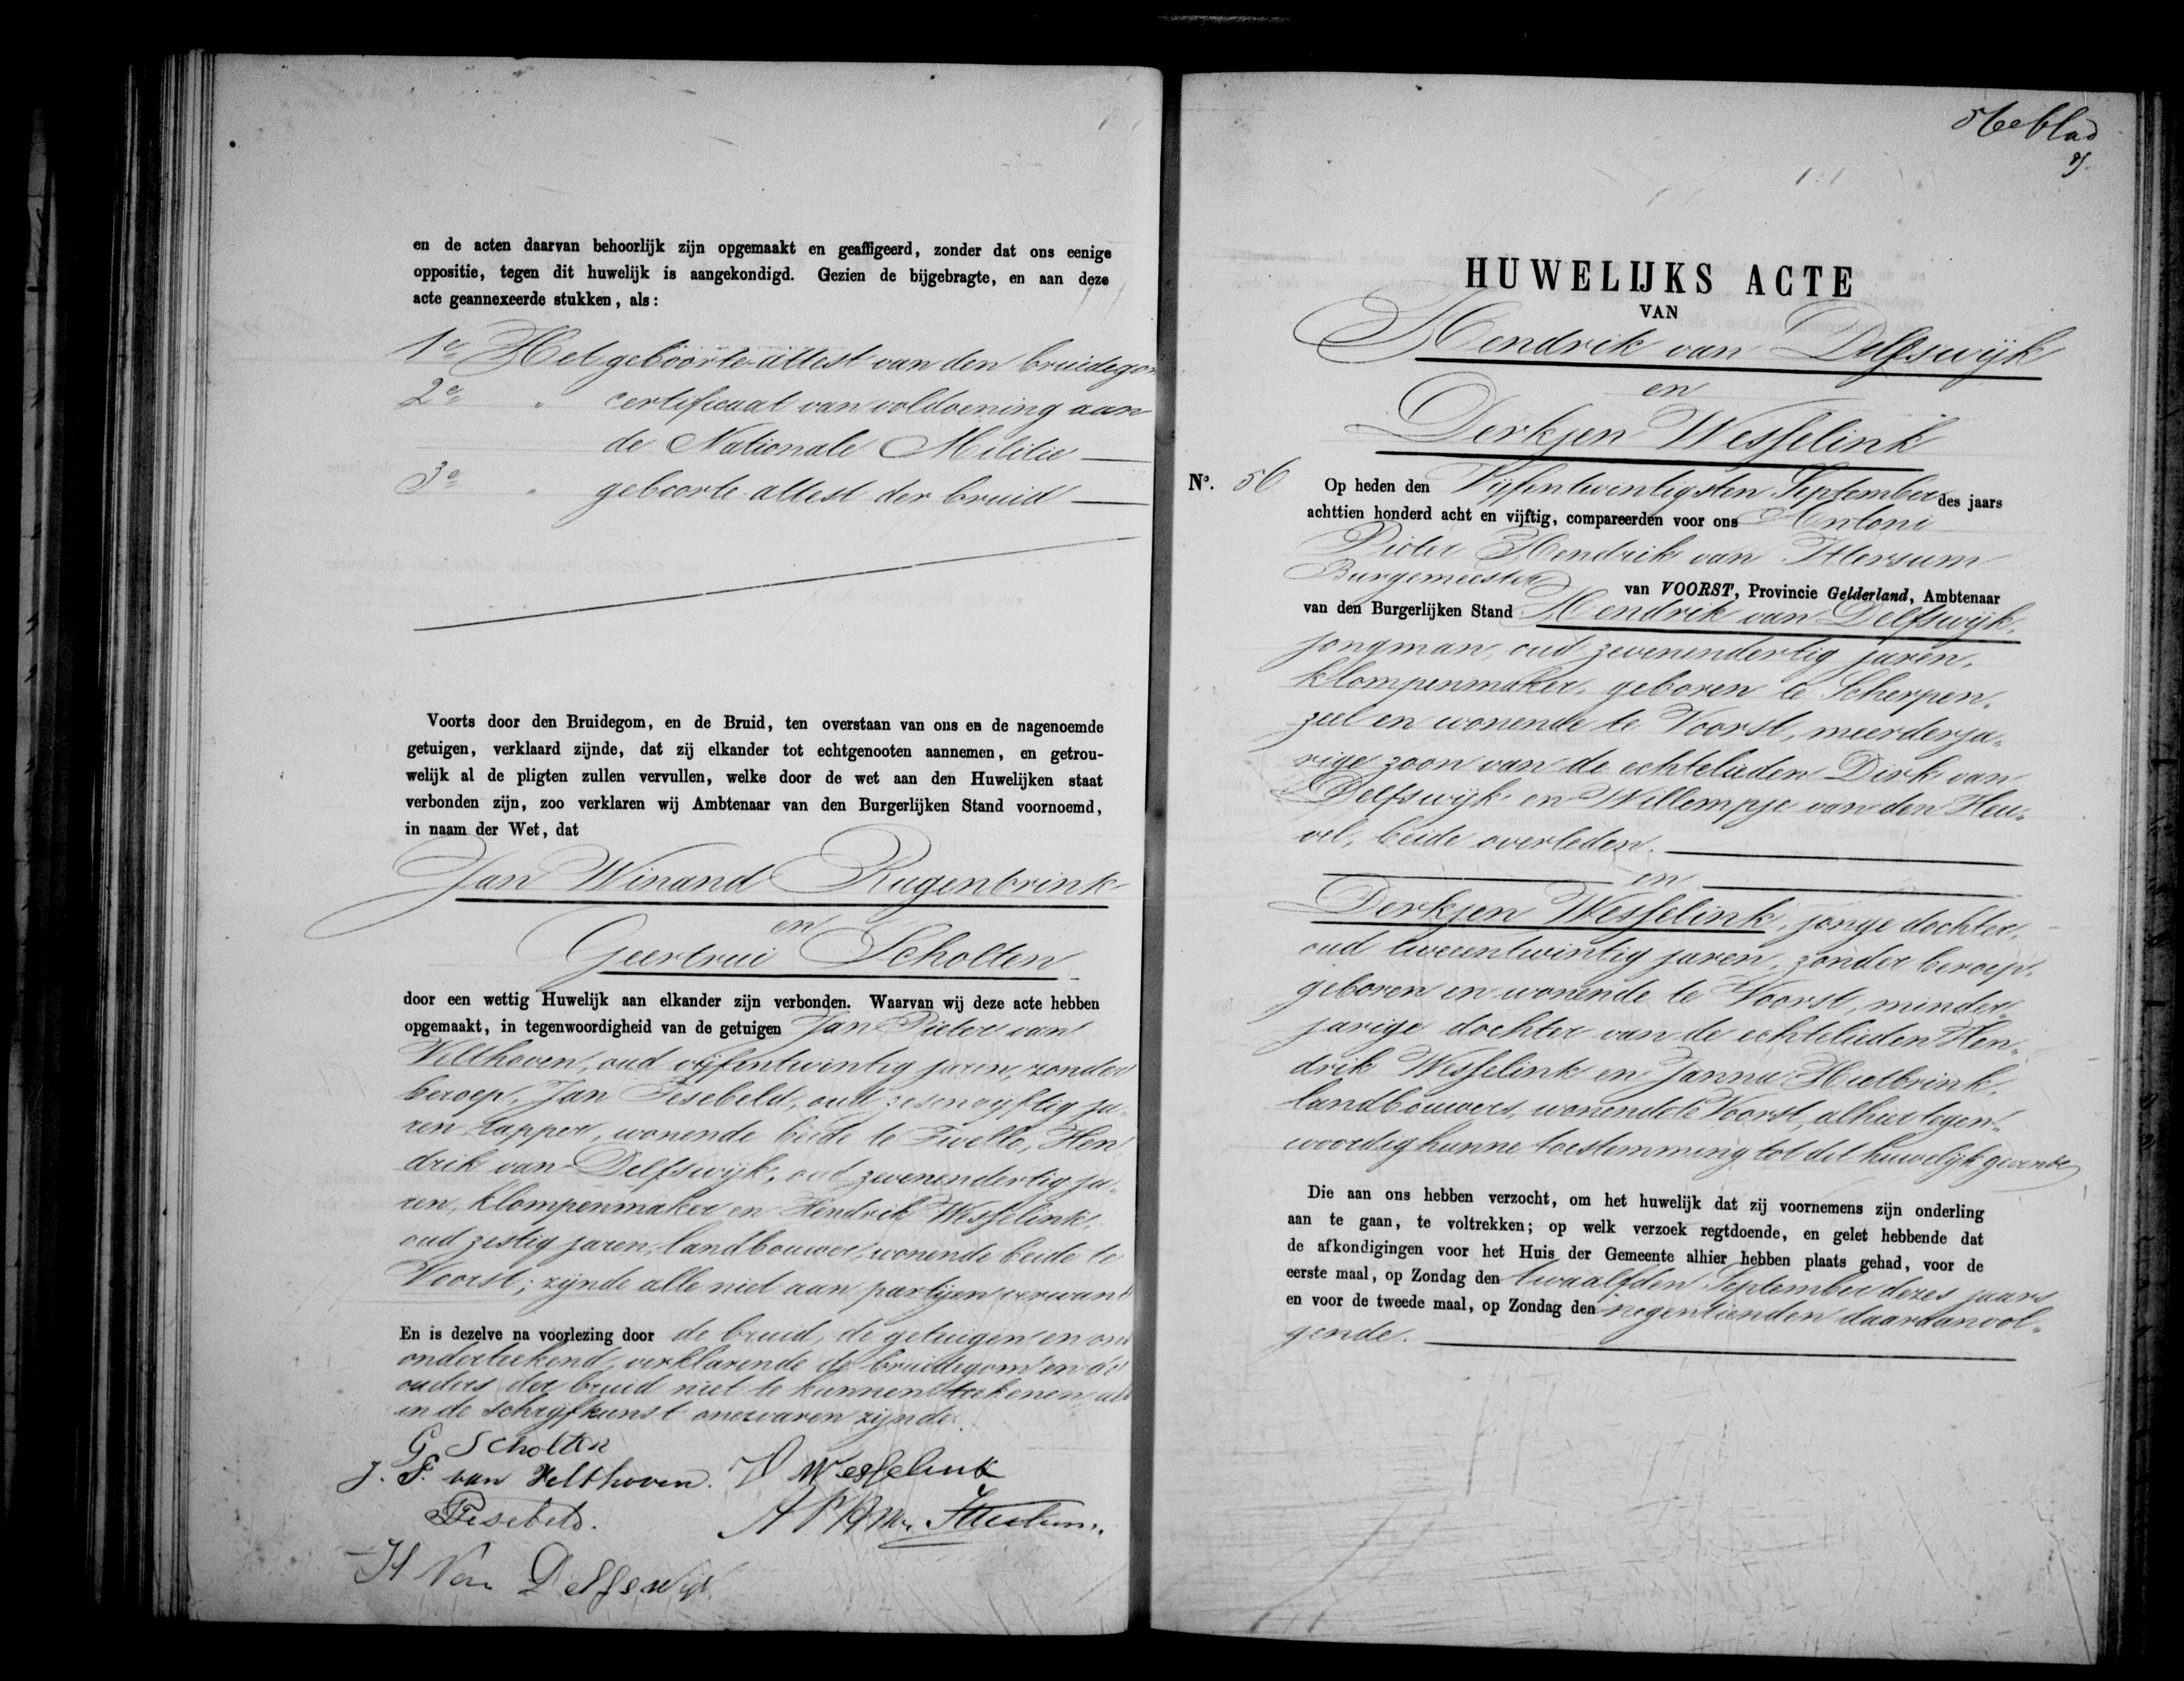 en de acten daarvan behoorlijk zijn opgemaakt en geaffigeerd, zonder dat ons eenige
oppositie, tegen dit huwelijk is aangekondigd. Gezien de bijgebragte, en aan deze
acte geannexeerde stukken, als:
1e Het geboorte attest van den bruidegom
2e " certificaat van voldoening aan
de Nationale Militie
3e " geboorte attest der bruid
Voorts door den Bruidegom, en de Bruid, ten overstaan van ons en de nagenoemde
getuigen, verklaard zijnde, dat zij elkander tot echtgenooten aannemen, en getrou-
welijk al de pligten zullen vervullen, welke door de wet aan den Huwelijken staat
verbonden zijn, zoo verklaren wij Ambtenaar van den Burgerlijken Stand voornoemd,
in naam der Wet, dat
Jan Winand Rugenbrink
en
Geertrui Scholten
door een wettig Huwelijk aan elkander zijn verbonden. Waarvan wij deze acte hebben
opgemaakt, in tegenwoordigheid van de getuigen Jan Pieter van
Velthoven, oud vijfentwintig jaren, zonder
beroep, Jan Fesebeld, oud zesenvijftig ja-
ren, tapper, wonende beide te Twello, Hen
drik van Delfswijk, oud zevenendertig ja-
ren, klompenmaker en Hendrik Wesselink,
oud zestig jaren, landbouwer, wonende beide te
Voorst; zijnde alle niet aan partijen verwand
En is dezelve na voorlezing door de bruid, de getuigen en ons
onderteekend, verklarende de bruidegom en de
ouders der bruid niet te kunnen teekenen, als
in de schrijfkunst onervaren zijnde.
G Scholten
J. P. van Velthoven. H Wesselink
Fesebeld.
H Van Delfswijk
56e blad
HUWELIJKS ACTE
VAN
Hendrik van Delfswijk
en
Derkjen Wesselink
No. 56 Op heden den Vijfentwintigsten September des jaars
achttien honderd acht en vijftig, compareerden voor ons Antoni
Pieter Hendrik van Ittersum
Burgemeester van VOORST, Provincie Gelderland, Ambtenaar
van den Burgerlijken Stand Hendrik van Delfswijk,
jongman, oud zevenendertig jaren,
klompenmaker, geboren te Scherpen-
zeel en wonende te Voorst, meerderja-
rige zoon van de echtelieden Dirk van
Delfswijk en Willempje van den Heu-
vel, beide overleden.
en
Derkjen Wesselink, jonge dochter,
oud tweeentwintig jaren, zonder beroep,
geboren en wonende te Voorst, minder-
jarige dochter van de echtelieden Hen-
drik Wesselink en Janna Hietbrink,
landbouwers, wonende te Voorst, alhier tegen-
woordig hunne toestemming tot dit huwelijk gevende
Die aan ons hebben verzocht, om het huwelijk dat zij voornemens zijn onderling
aan te gaan, te voltrekken; op welk verzoek regtdoende, en gelet hebbende dat
de afkondigingen voor het Huis der Gemeente alhier hebben plaats gehad, voor de
eerste maal, op Zondag den twaalfden September dezes jaars
en voor de tweede maal, op Zondag den negentienden daaraanvol-
gende.